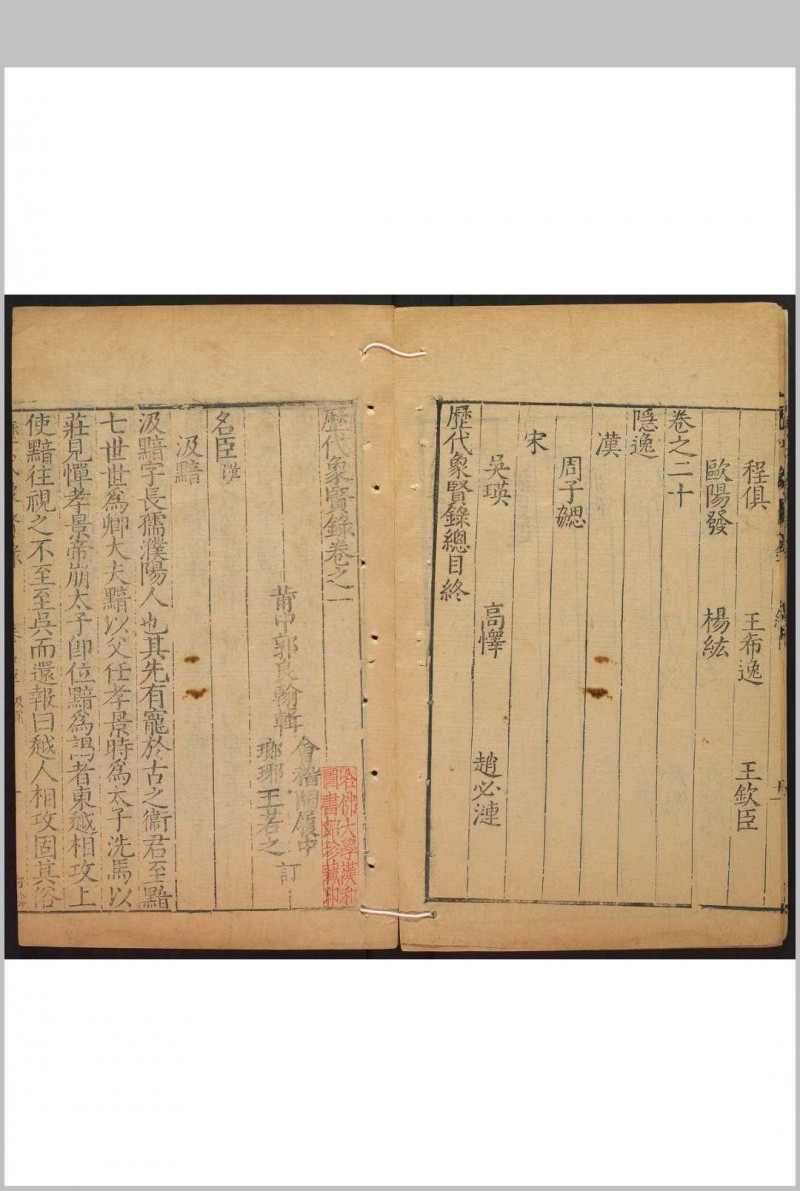 程俱　王希逸　王欽臣
歐陽發　楊紘
卷之二十
隱逸
漢
周子勰
宋
吳瑛　高懌　趙必漣
歷代象賢錄總目終
歷代象賢錄卷之一
莆中郭良翰輯
會稽　履中
瑯琊王若之　訂
名臣漢
汲黯
汲黯字長孺濮陽人也其先有寵於古之衞君至黯
七世世爲卿大夫黯以父任孝景時爲太子洗馬以
莊見憚孝景帝崩太子卽位黯爲謁者東越相攻上
使黯往視之不至至吳而還報曰越人相攻固其俗
哈佛大學漢和
圖書館珍藏印